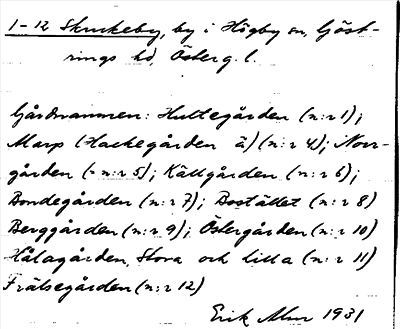 1-12 Skrukeby, by i Högby sn, Göst-
rings hd, Österg. l.
Gårdnamnen: Huttegården (n:r 1);
Marp (Hackegården ä) (n:r 4); Norr-
gården (- n:r 5); Källgården (n:r 6);
Bondegården (n:r 7); Bostället (n:r 8)
Berggården (n:r 9); Östergården (n:r 10)
Hålagården, Stora och Lilla (n:r 11)
Frälsegården (n:r 12)
Erik 1931